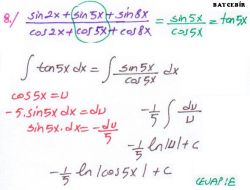 BAYCEBİR
8./ (sin2x + sin5x + sin8x)/(cos2x + cos5x + cos8x) = sin5x/cos5x = tan5x
∫ tan5x dx = ∫ sin5x/cos5x dx
cos5x = u
-5.sin5x.dx = du
sin5x.dx = -du/5
-1/5 ∫ du/u
-1/5 ln|u| + c
-1/5 ln|cos5x| + c
CEVAP:E